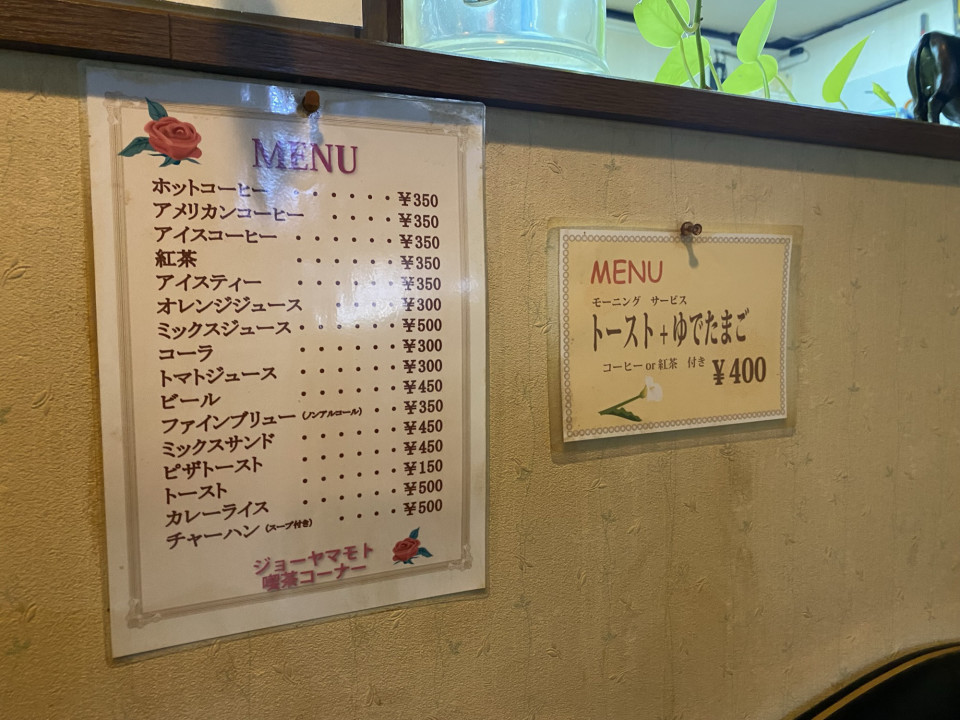 MENU
ホットコーヒー ・・・・・・ ¥350
アメリカンコーヒー ・・・・ ¥350
アイスコーヒー ・・・・・・ ¥350
紅茶 ・・・・・・ ¥350
アイスティー ・・・・・・ ¥350
オレンジジュース ・・・・ ¥300
ミックスジュース・・・・・・ ¥500
コーラ ・・・・・・ ¥300
トマトジュース ・・・・・・ ¥300
ビール ・・・・・・ ¥450
ファインブリュー(ノンアルコール)・・ ¥350
ミックスサンド ・・・・・・ ¥450
ピザトースト ・・・・・・ ¥450
トースト ・・・・・・ ¥150
カレーライス ・・・・・・ ¥500
チャーハン (スープ付き) ・・・・ ¥500
ジョーヤマモト
喫茶コーナー
MENU
モーニング サービス
トースト+ゆでたまご
コーヒー or 紅茶 付き ¥400